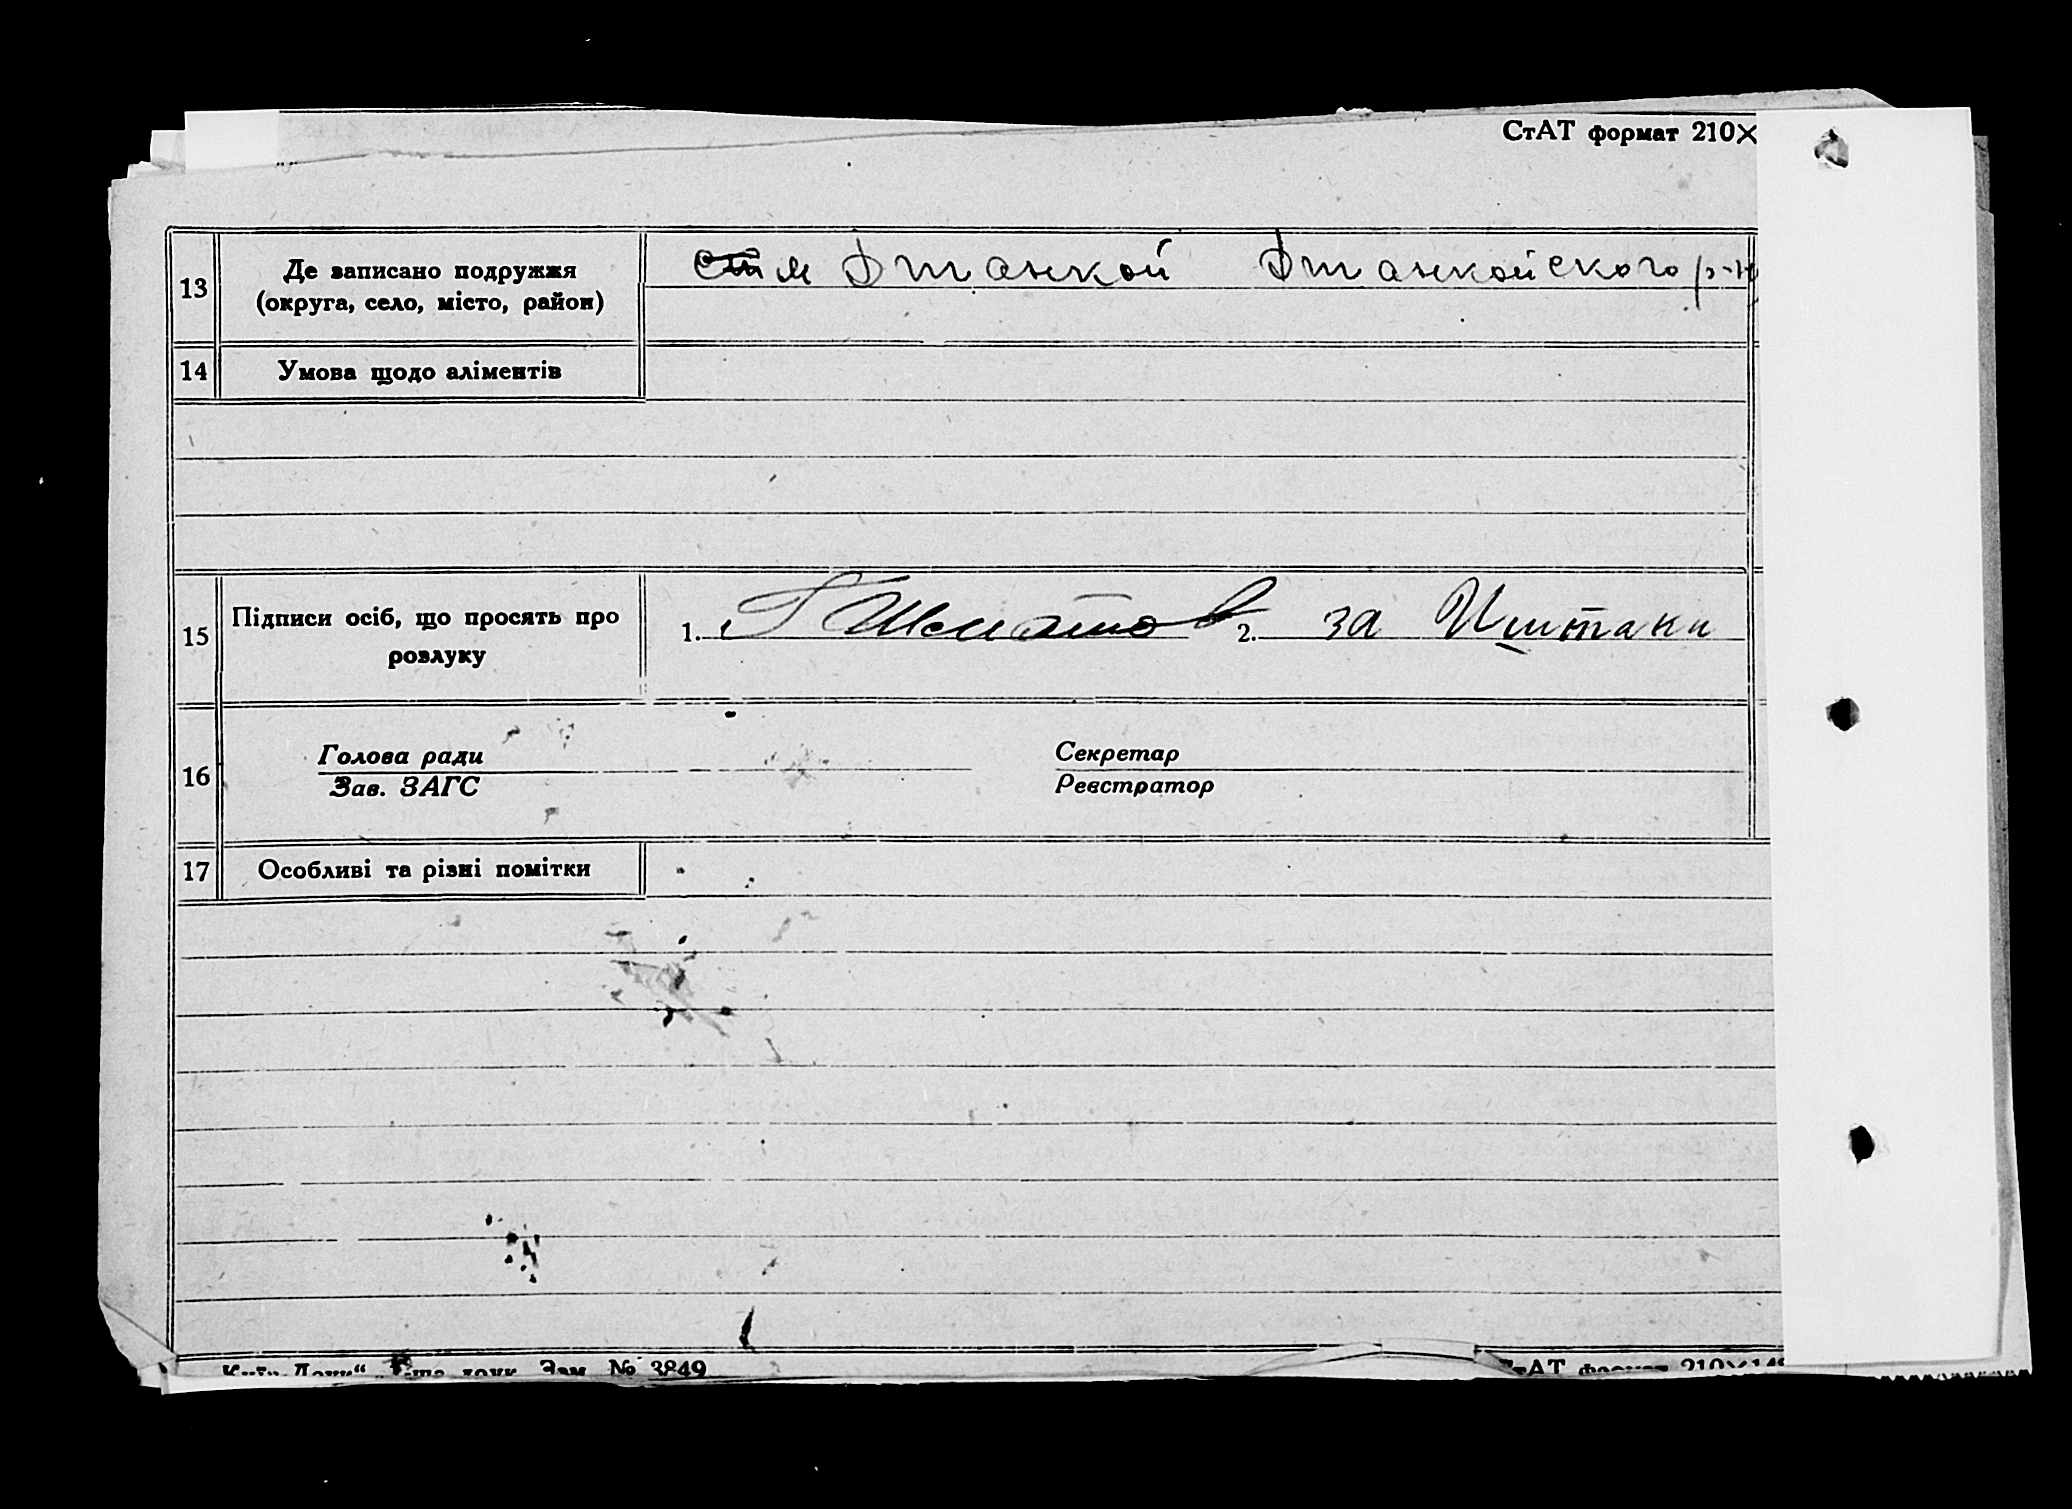 СтАТ формат 210×
13 Де записано подружжя (округа, село, місто, район)
м Джанкой Джанкойского р-н
14 Умова щодо аліментів
15 Підписи осіб, що просять про розлуку
1. 2. за
16 Голова ради Секретар
Зав. ЗАГС Реєстратор
17 Особливі та різні помітки
Зам. № 3849 СтАТ формат 210×148